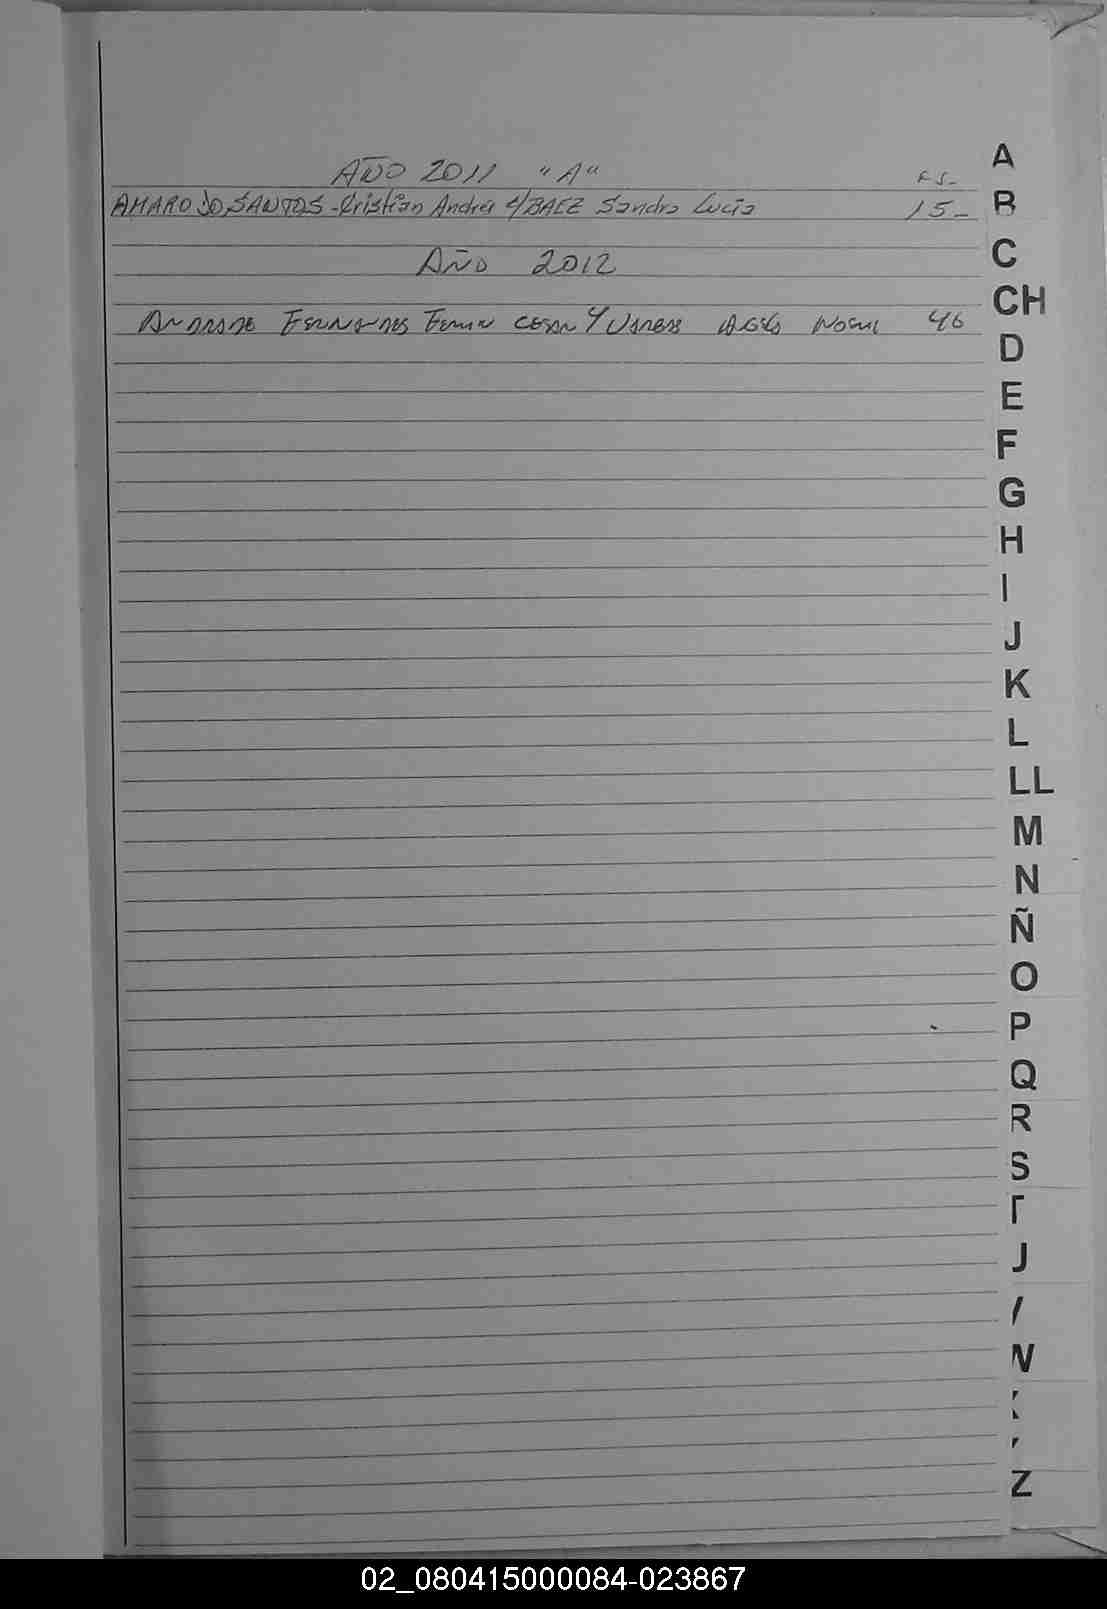 AÑO 2011 "A"
FS-
AMARO DO SANTOS - Cristian Andres y/BAEZ Sandra Lucia 15-
AÑO 2012
Andrade Fernandes Cesar y 46
A
B
C
CH
D
E
F
G
H
I
J
K
L
LL
M
N
Ñ
O
P
Q
R
S
T
J
W
Z
02_080415000084-023867